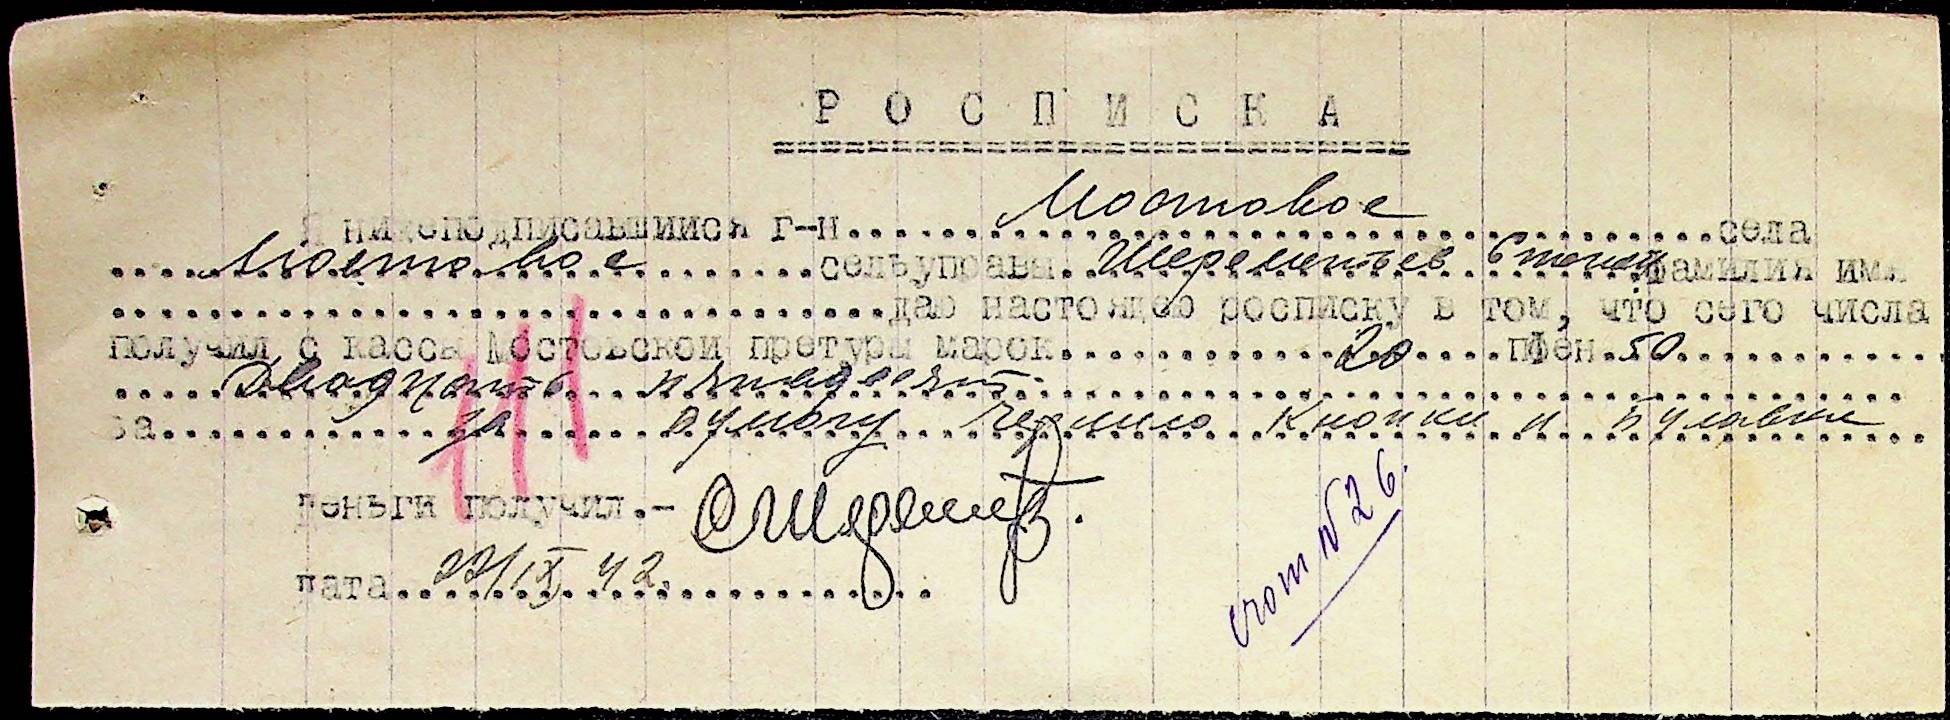 Р О С П И С К А
Я нижеподписавшийся г-н......Мостовое......села
......Мостовое......сельуправы.Шереметьев Степан фамилия имя
......даю настоящею росписку в том, что сего числа
получил с кассы Мостовской претуры марок......20....пфен.50......
....Двадцать пятьдесят......
за......за бумагу чернило кнопки и Булавки
Деньги получил.-
дата...22/IX 42.......
счот №26.